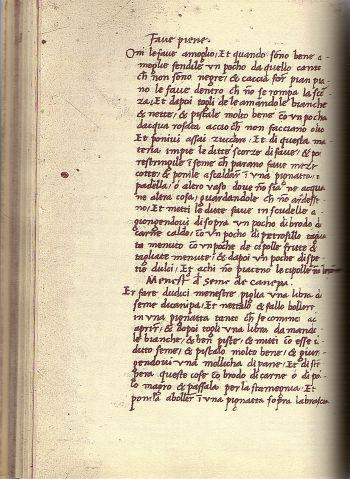 Fave piene.
Oni le fave amoglio, Et quando sono bene a
moglie fendile un pocho da quello canto
ch non sono negre, & caccia for pian pia
no le fave dentro ch no se rompa la scor
za, Et dapoi togli de le amandole bianche
& nette, & pistale molto bene con un pocho
dacqua rosata accio ch non facciano olio
Et ponivi assai zuccaro, Et di questa ma
teria impie le ditte scorze di fave, & po
restringile i seme ch parano fave meze
cotte, & ponile ascaldar i una pignatta, i
padella, o altro vaso dove no sia ne acqua
ne altra cosa, guardandole ch no ardesse
no, Et metti le ditte fave in scudelle a
giongendovi di sopra un pocho di brodo di
carne caldo, con un pocho di petrosillo taglia
to menuto con un poche de cipolle fritte &
tagliate menute, & dapoi un poche di spe
tie dulci, Et achi no piaceno le cipolle no
Menestra d seme de canepa.
Et fare dudici menestre piglia una libra d
seme dcanipa, Et nettalo & fallo bollire
in una pignatta tanto ch se cominci ad
aprir, & dapoi togli una libra damando
le bianche, & ben piste, & mitti con esse i
ditto seme, & pistalo molto bene, & giun
gendovi una mollicha di pane, Et distem
pera queste cose con brodo di carne o di po
lo magro & passala per la stamegnia, Et
ponila abollir i una pignatta sopra la brascia